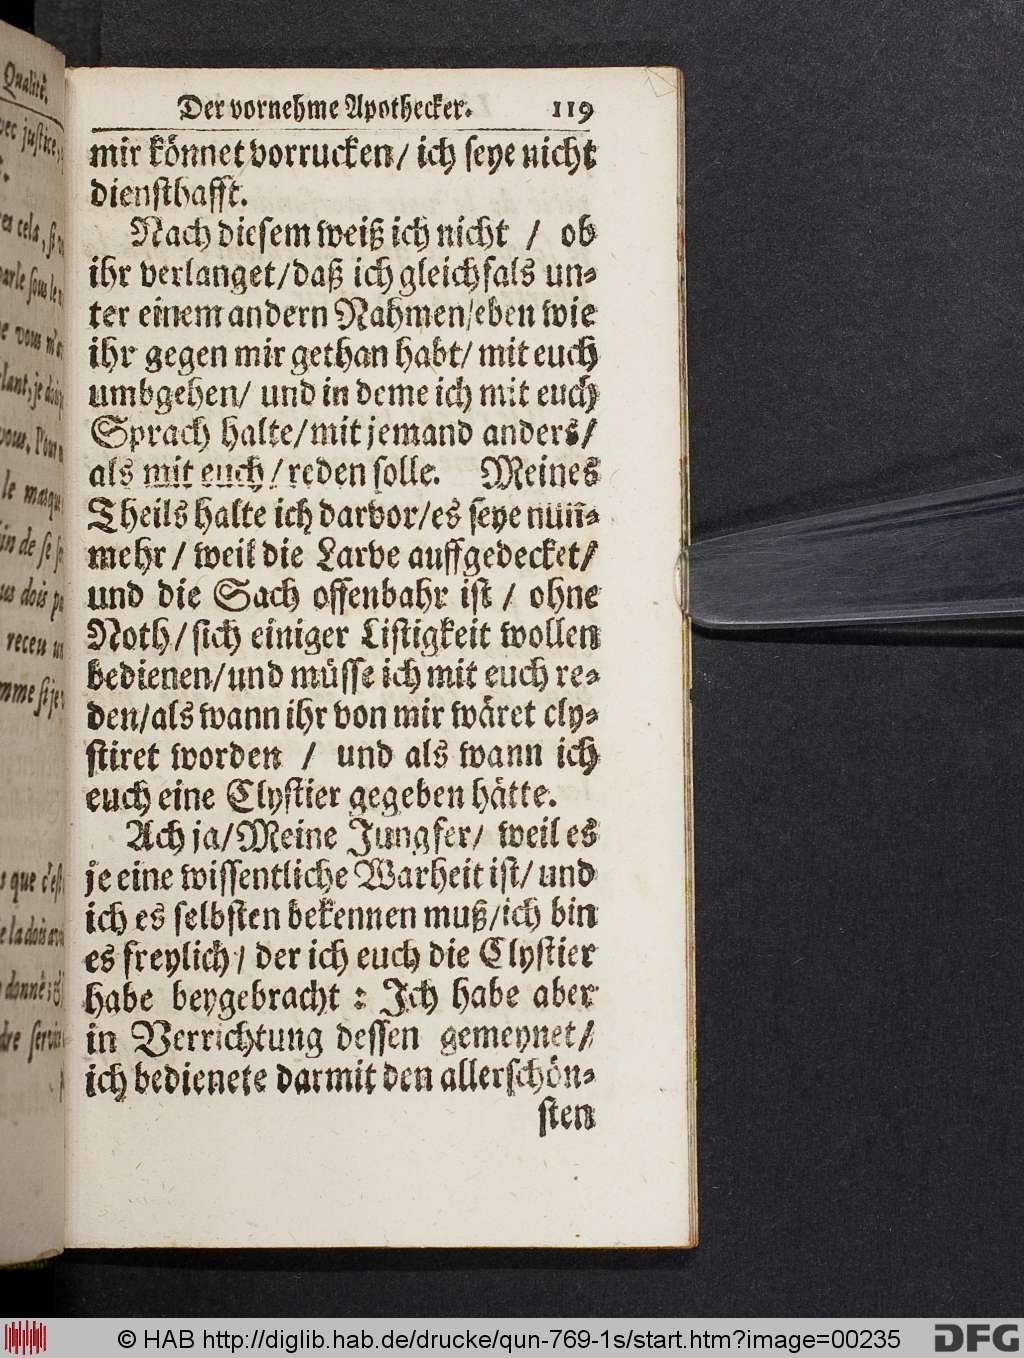 Der vornehme Apothecker. 119
mir könnet vorrucken/ ich seye nicht
diensthafft.
Nach diesem weiß ich nicht / ob
ihr verlanget/daß ich gleichfals un-
ter einem andern Nahmen/eben wie
ihr gegen mir gethan habt/ mit euch
umbgehen/ und in deme ich mit euch
Sprach halte/mit jemand anders/
als mit euch/reden solle. Meines
Theils halte ich darvor/es seye nun-
mehr / weil die Larve auffgedecket/
und die Sach offenbahr ist / ohne
Noth/sich einiger Listigkeit wollen
bedienen/und müsse ich mit euch re-
den/als wann ihr von mir wäret cly-
stiret worden / und als wann ich
euch eine Clystier gegeben hätte.
Ach ja/Meine Jungfer/ weil es
je eine wissentliche Warheit ist/ und
ich es selbsten bekennen muß/ich bin
es freylich/ der ich euch die Clystier
habe beygebracht : Ich habe aber
in Verrichtung dessen gemeynet/
ich bedienete darmit den allerschön-
sten
Qualité.
justice,
cela, si
sous le
vous
je
vous. Pour
le
de se
dois
receu
si je
que c'est
donné;
© HAB http://diglib.hab.de/drucke/qun-769-1s/start.htm?image=00235
DFG